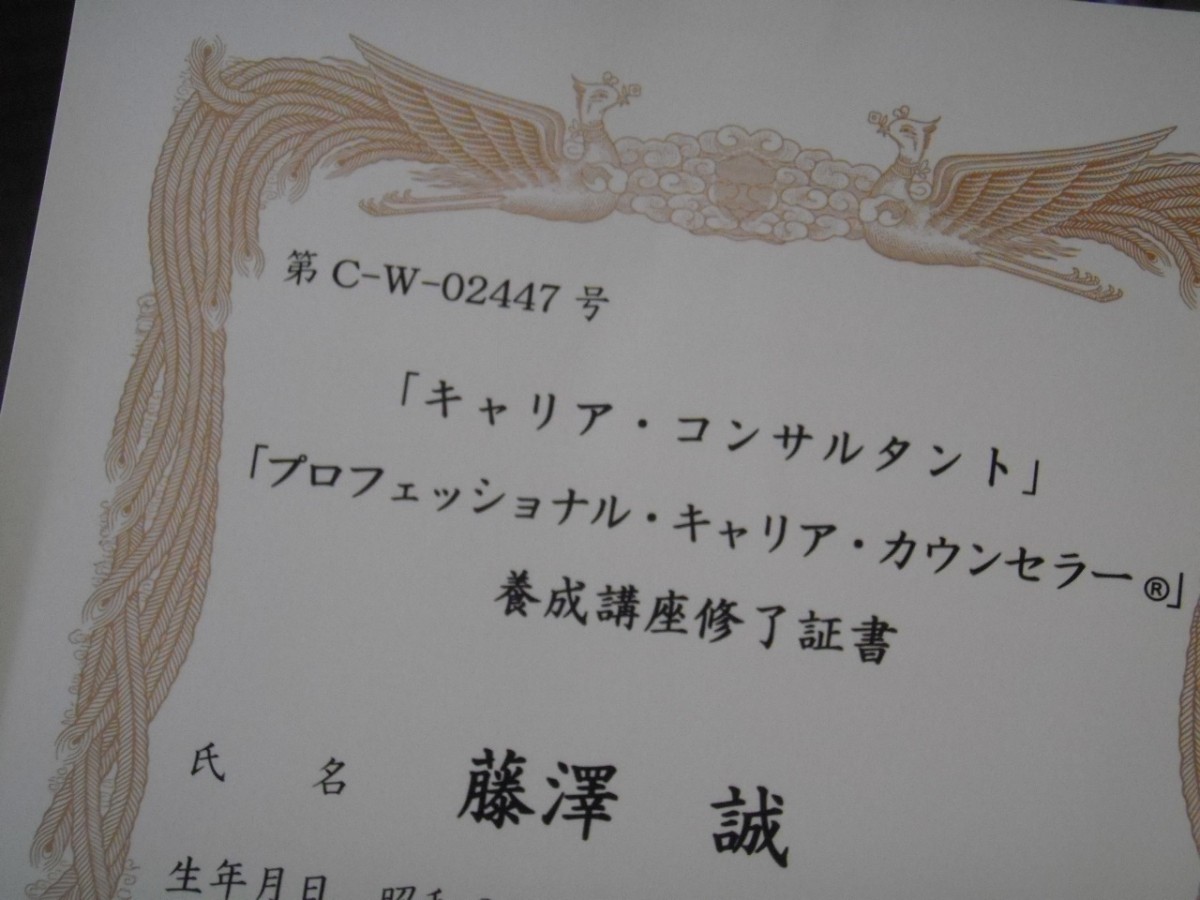 第 C-W-02447 号
「キャリア・コンサルタント」
「プロフェッショナル・キャリア・カウンセラー®」
養成講座修了証書
氏 名 藤澤 誠
生年月日 昭和